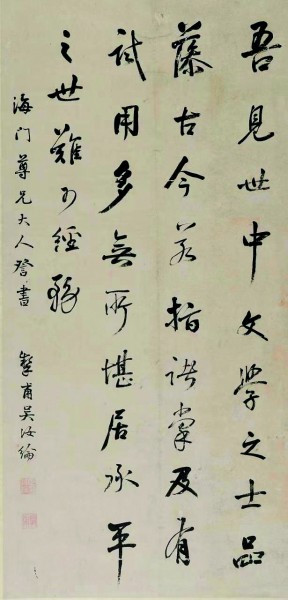 吾見世中文學之士品
藻古今若指諸掌及有
試用多無所堪居承平
之世難可經務
海門尊兄大人詧書
摯甫吳汝綸